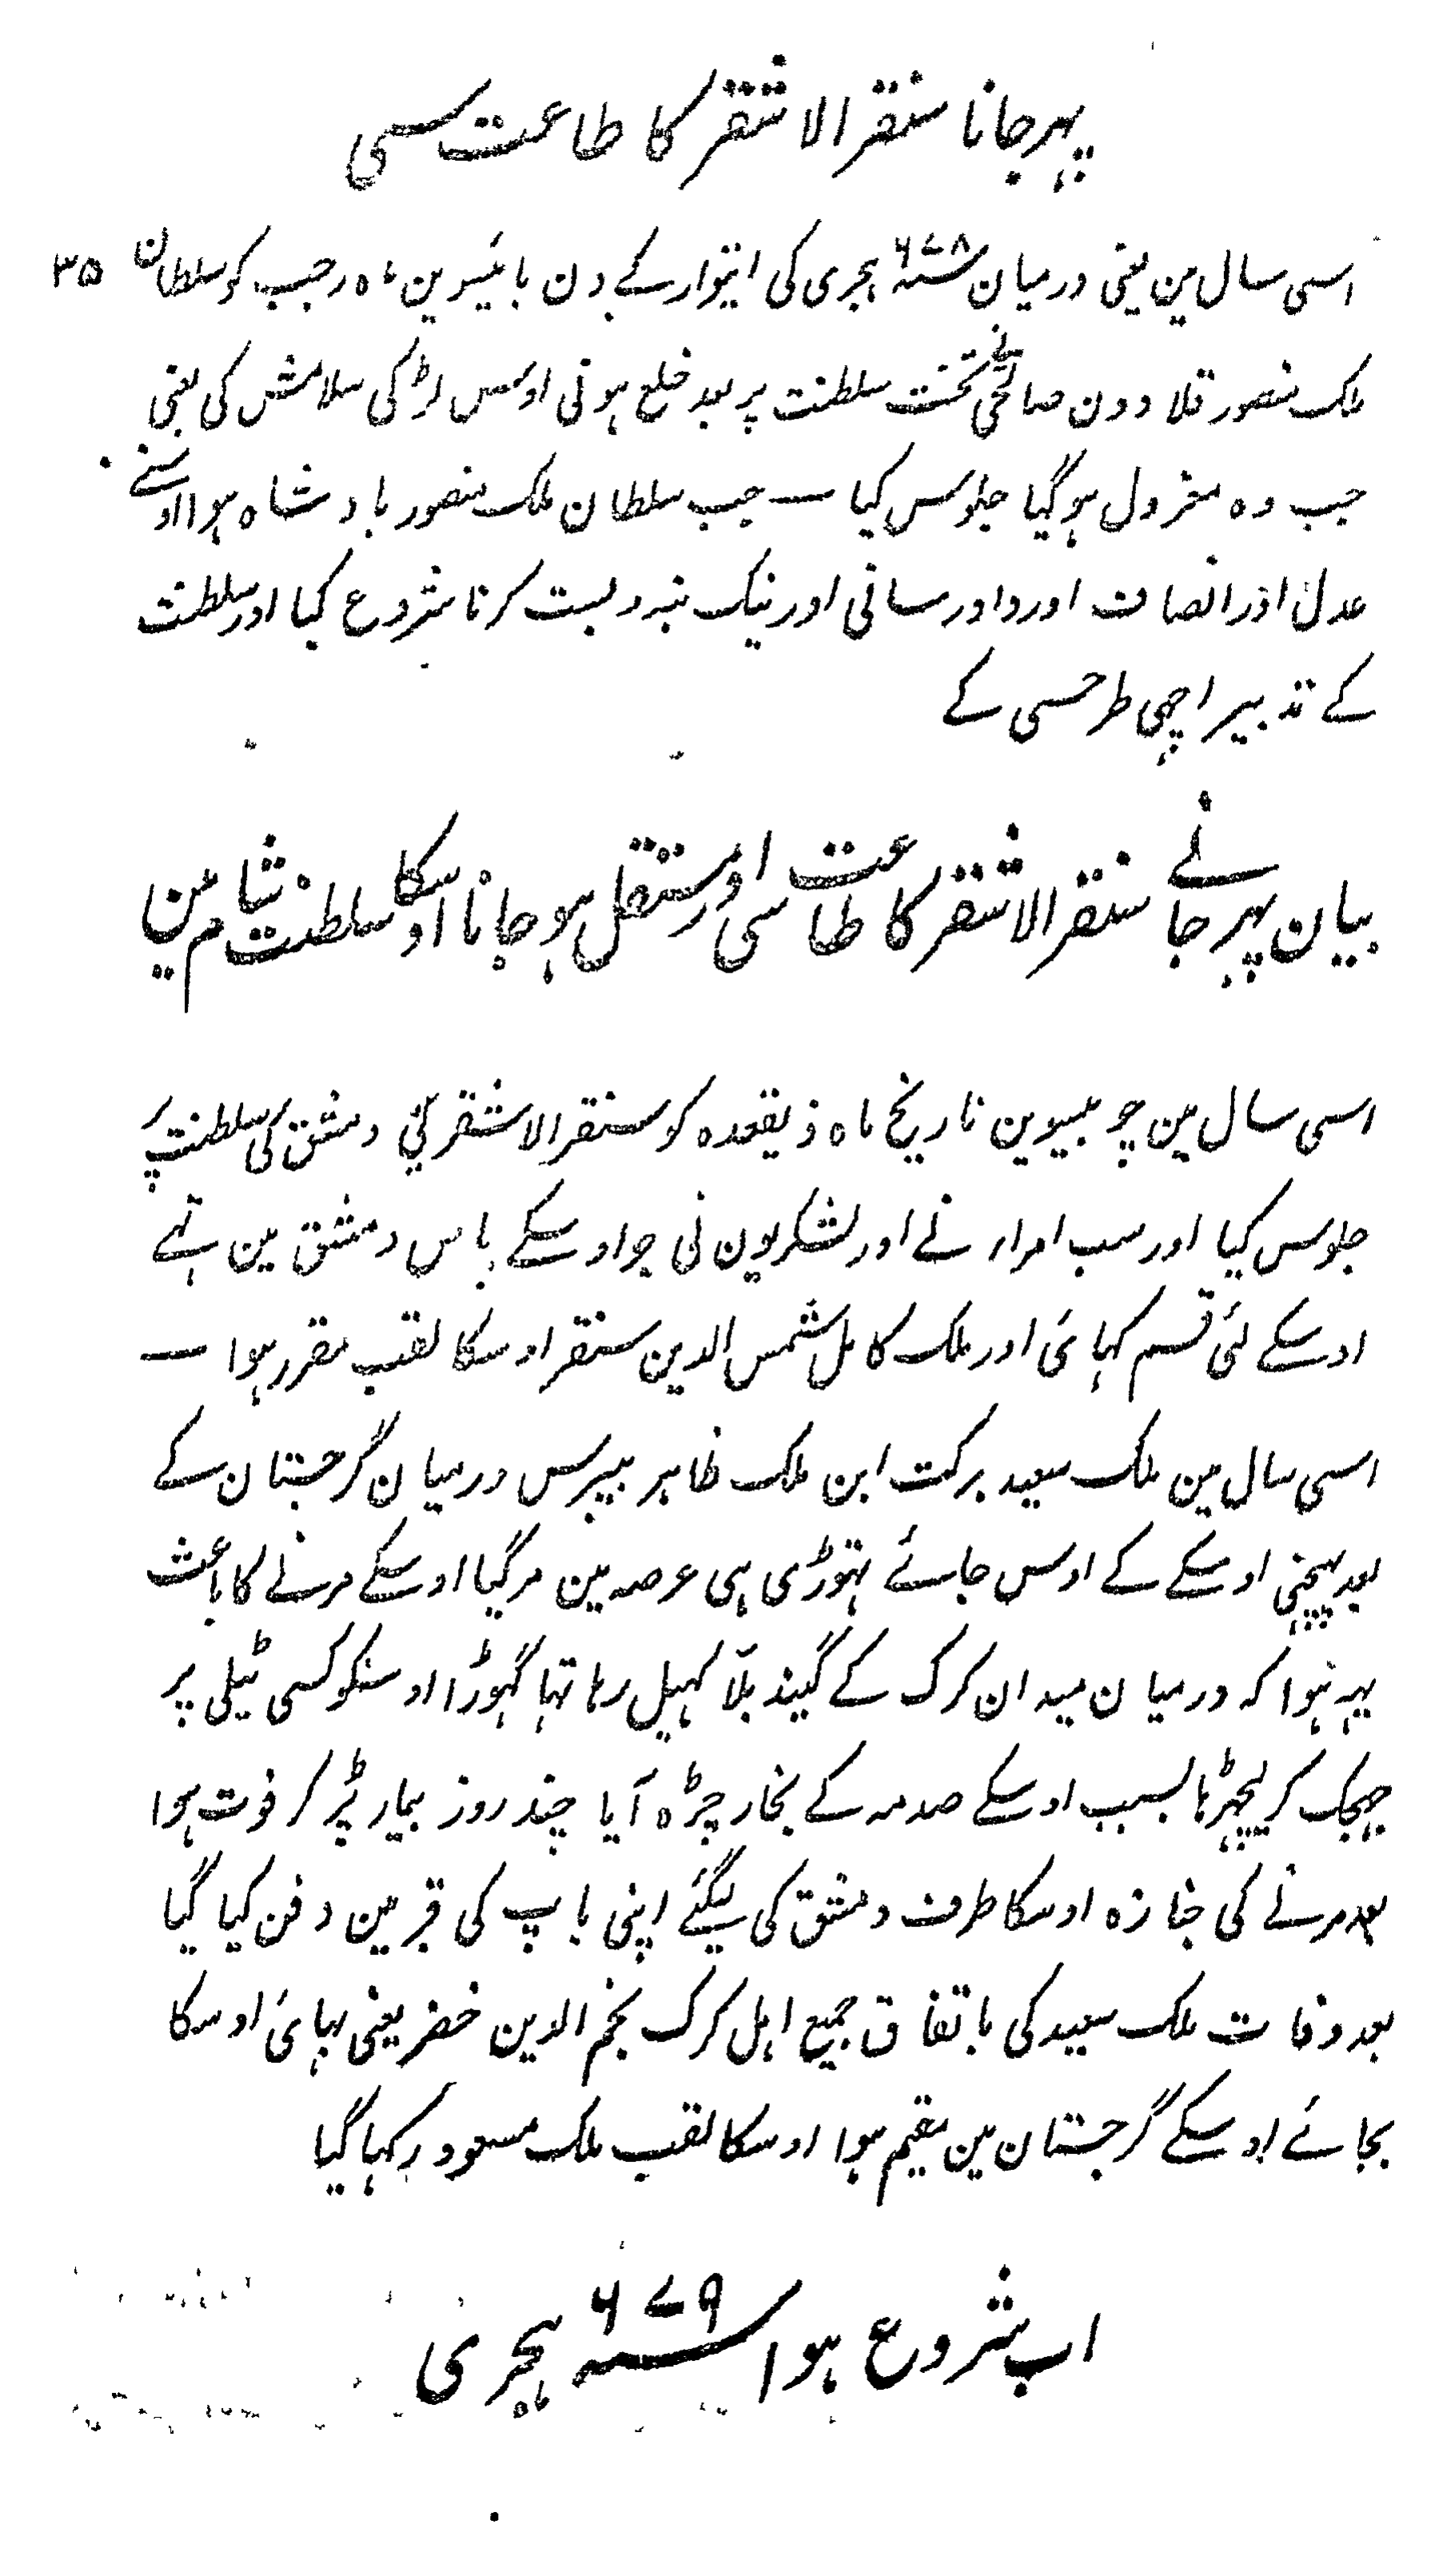 پہر جانا سنقر الاشقر کا طاعت سی
اسی سال مین یعنی درمیان ۶۷۸ سنہ ہجری کی اتوار کے دن بائیسوین ماہ رجب کو سلطان ۳۵
ملک منصور قلاوون صالحی نے تخت سلطنت پر بعد خلع ہونی اوس لڑکی سلامش کی یعنی
جب وہ معزول ہو گیا جلوس کیا — جب سلطان ملک منصور بادشاہ ہوا اوسنے
عدل اور انصاف اور داد رسانی اور نیک بندوبست کرنا شروع کیا اور سلطنت
کے تدبیر اچھی طرحسی کے
بیان پہر جانے سنقر الاشقر کا طاعت سی اور مستقل ہو جانا اوسکا سلطنت شام مین
اسی سال مین چوبیسوین تاریخ ماہ ذیقعدہ کو سنقر الاشقر نی دمشق کی سلطنت پر
جلوس کیا اور سب امراء نے اور لشکریون نی جو اوسکے پاس دمشق مین تہے
اوسکے لئی قسم کہائی اور ملک کامل شمس الدین سنقر اوسکا لقب مقرر ہوا —
اسی سال مین ملک سعید برکت ابن ملک ظاہر بیبرس درمیان گرجستان کے
بعد پہچنی اوسکے کے اوس جائے تہوڑی ہی عرصہ مین مر گیا اوسکے مرنے کا باعث
یہہ ہوا کہ درمیان میدان کرک کے گیند بلّا کہیل رہا تہا گہوڑا اوسکو کسی ٹیلی پر
جہجک کر لیچڑہا بسبب اوسکے صدمہ کے بخار چڑہ آیا چند روز بیمار پڑ کر فوت ہوا
بعد مرنے کی جنازہ اوسکا طرف دمشق کی لیگئے اپنی باپ کی قبر مین دفن کیا گیا
بعد وفات ملک سعید کی باتفاق جمیع اہل کرک نجم الدین خضر یعنی بہائی اوسکا
بجائے اوسکے گرجستان مین مقیم ہوا اوسکا لقب ملک مسعود رکہا گیا
اب شروع ہوا ۶۷۹ سنہ ہجری